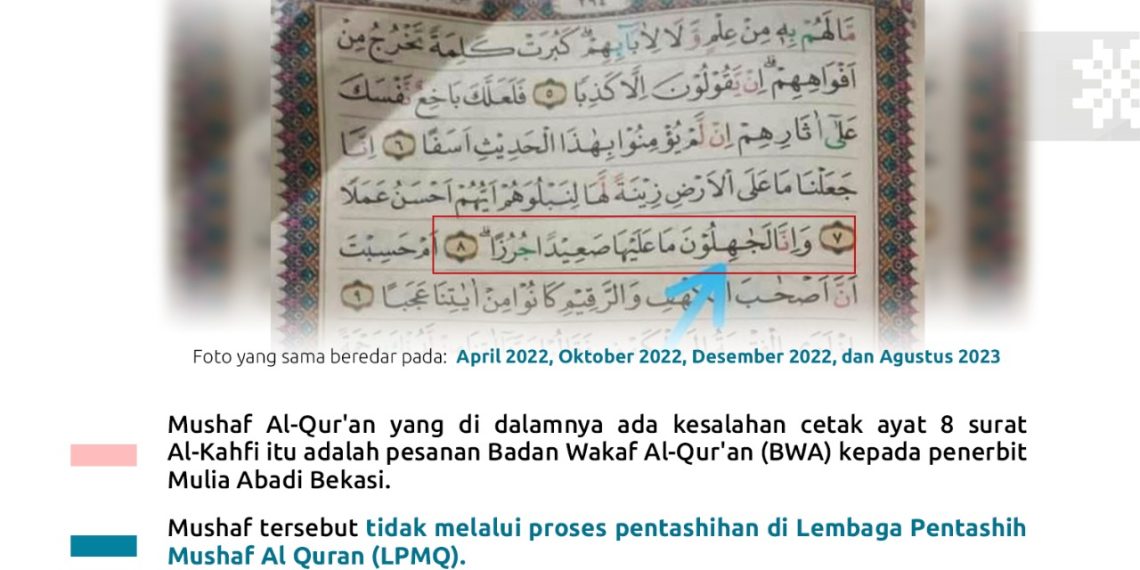 ٢٩٤
مَّا لَهُمْ بِهٖ مِنْ عِلْمٍ وَّلَا لِاٰبَاۤىِٕهِمْۗ كَبُرَتْ كَلِمَةً تَخْرُجُ مِنْ
اَفْوَاهِهِمْۗ اِنْ يَّقُوْلُوْنَ اِلَّا كَذِبًا ٥ فَلَعَلَّكَ بَاخِعٌ نَّفْسَكَ
عَلٰٓى اٰثَارِهِمْ اِنْ لَّمْ يُؤْمِنُوْا بِهٰذَا الْحَدِيْثِ اَسَفًا ٦ اِنَّا
جَعَلْنَا مَا عَلَى الْاَرْضِ زِيْنَةً لَّهَا لِنَبْلُوَهُمْ اَيُّهُمْ اَحْسَنُ عَمَلًا
٧ وَاِنَّا لَجٰهِلُوْنَ مَا عَلَيْهَا صَعِيْدًا جُرُزًاۗ ٨ اَمْ حَسِبْتَ
اَنَّ اَصْحٰبَ وَالرَّقِيْمِ كَانُوْا مِنْ اٰيٰتِنَا عَجَبًا ٩
Foto yang sama beredar pada: April 2022, Oktober 2022, Desember 2022, dan Agustus 2023
Mushaf Al-Qur'an yang di dalamnya ada kesalahan cetak ayat 8 surat
Al-Kahfi itu adalah pesanan Badan Wakaf Al-Qur'an (BWA) kepada penerbit
Mulia Abadi Bekasi.
Mushaf tersebut tidak melalui proses pentashihan di Lembaga Pentashih
Mushaf Al Quran (LPMQ).